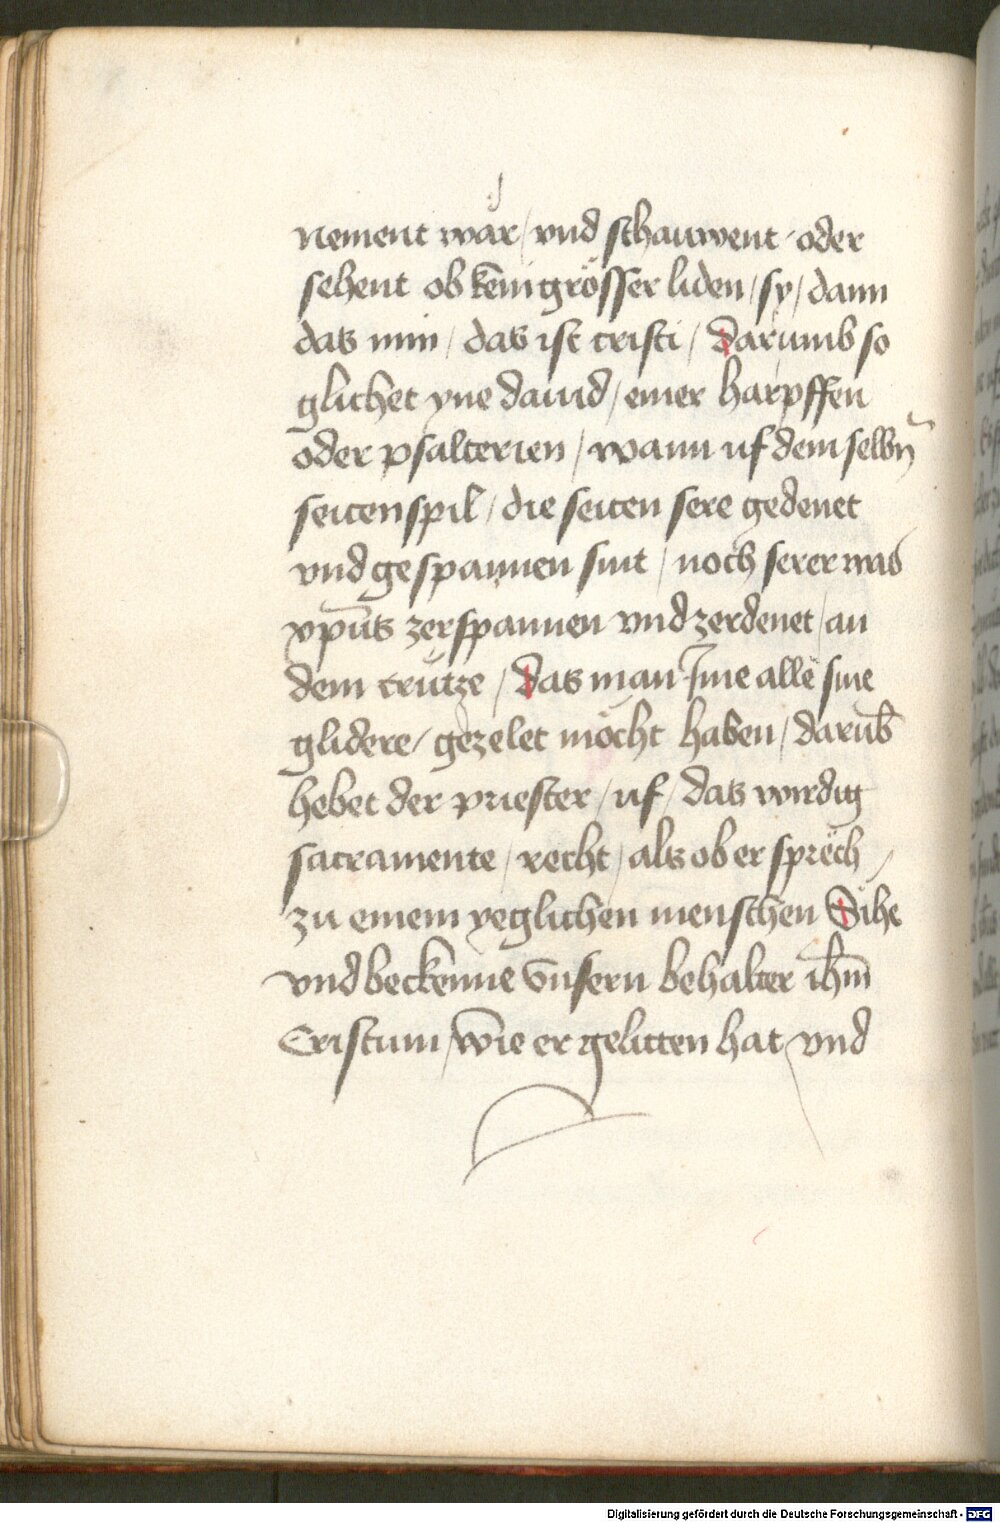 nement war / vnd schauwent oder
sehent ob kein grösser liden / sy / dann
das min / das ist cristi / Darumb so
glichet yne dauid / einer harpffen
oder psalterien / wann uf dem selbn̄
seitenspil / die seiten sere gedenet
vnd gespannen sint / noch serer was
xpūs zerspannen vnd zerdenet / an
dem crütze / Das man Ime alle sine
glidere / gezelet möcht haben / darūb
hebet der priester / uf / das wirdig
sacramente / recht / als ob er sprëch /
zu einem yeglichen menschen Sihe
vnd beckenne vnsern behalter ihm̄
Cristum / wie er gelitten hat vnd
Digitalisierung gefördert durch die Deutsche Forschungsgemeinschaft - DFG